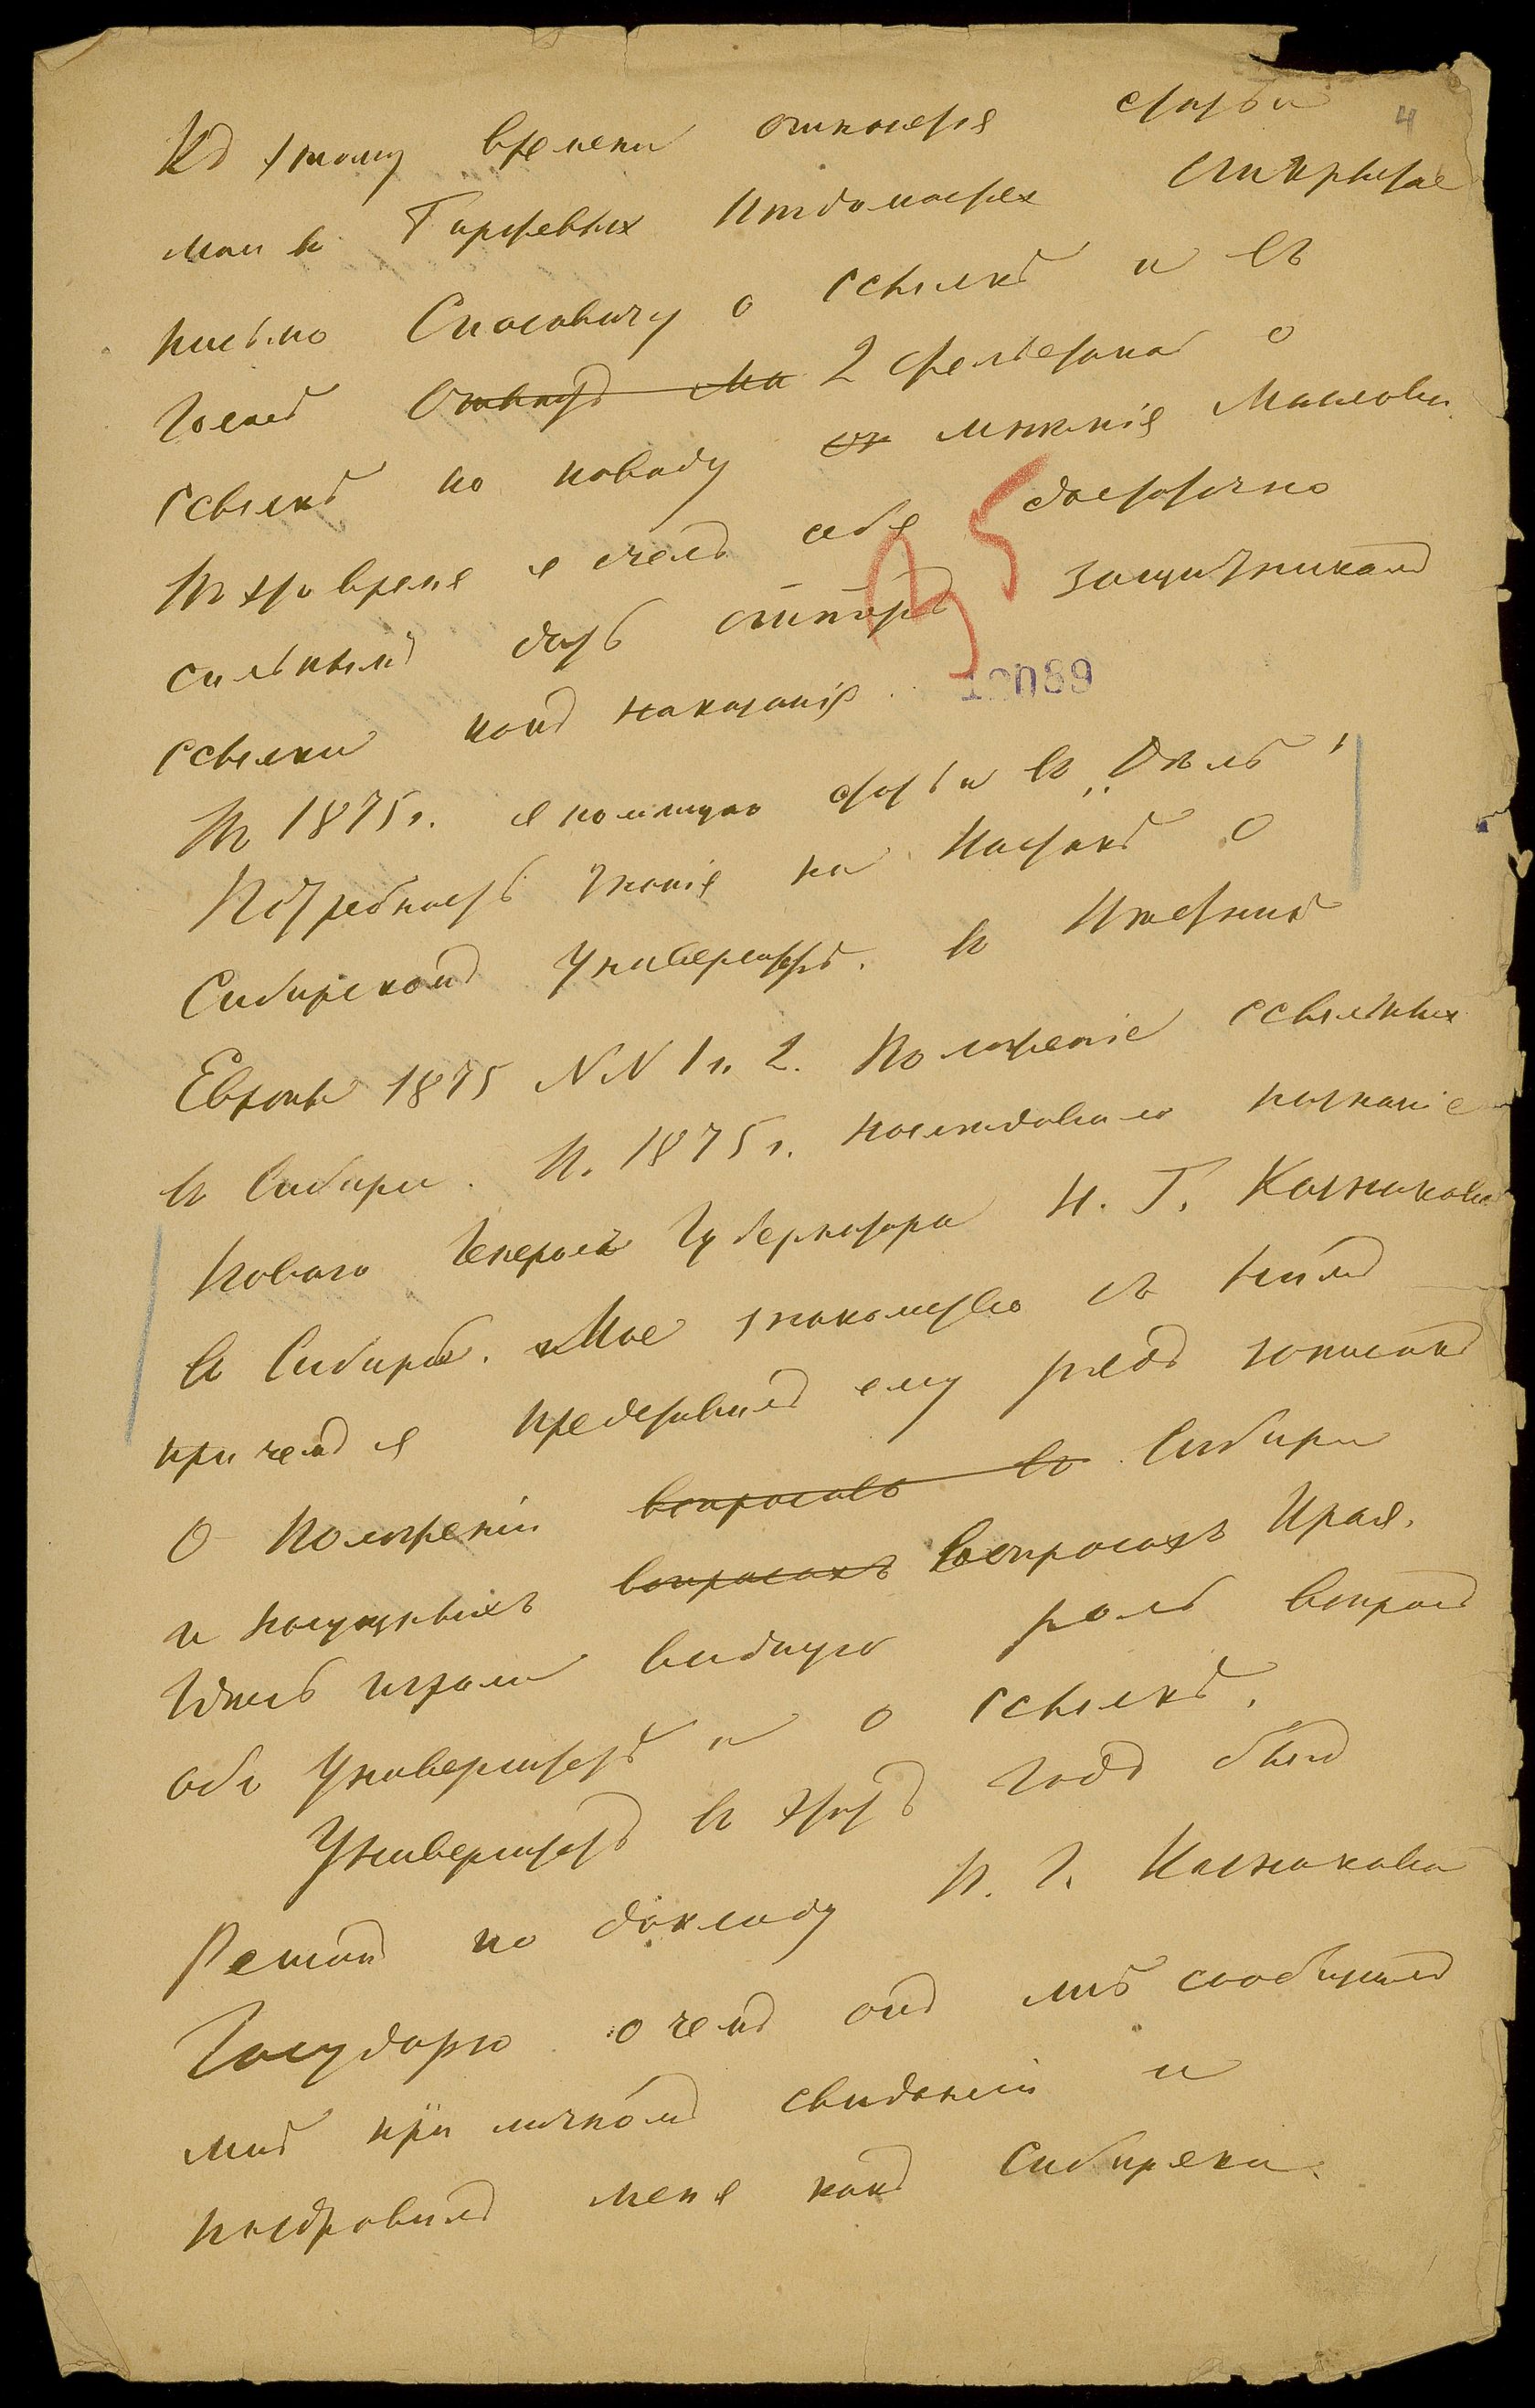 4
Къ этому времени относятся статьи
мои в Биржевых Ведомостях открытое
письмо Спасовичу о ссылкѣ и въ
Голосѣ ~~Отвѣтъ Ма~~ 2 фельетона о
ссылкѣ по поводу мнѣнія Маслова
Въ это время я счелъ себя достаточно
сильнымъ дать отпоръ защитникамъ
ссылки какъ наказанія.
10089
Въ 1875 г. я помещаю статьи въ „Дѣлѣ"
Потребность знанія на Востокѣ о
Сибирскомъ Университетѣ. В Вестникѣ
Европы 1875 NN 1 и 2. Положеніе ссыльных
в Сибири. В. 1875 г. последовало назначеніе
новаго Генералъ Губернатора Н. Г. Казнакова
въ Сибирь. Мое знакомство съ нимъ
при чемъ я представилъ ему рядъ записокъ
О положеніи ~~вопросовъ въ~~ Сибири
и насущныхъ ~~вопросахъ~~ Вопросахъ Края.
Здѣсь играли видную роль вопросъ
объ Университетѣ и о ссылкѣ.
Университетъ въ этотъ годъ былъ
Решенъ по докладу Н. Г. Казнакова
Государю о чемъ онъ мнѣ сообщилъ
мнѣ при личномъ свиданіи и
поздравилъ меня какъ Сибиряка.